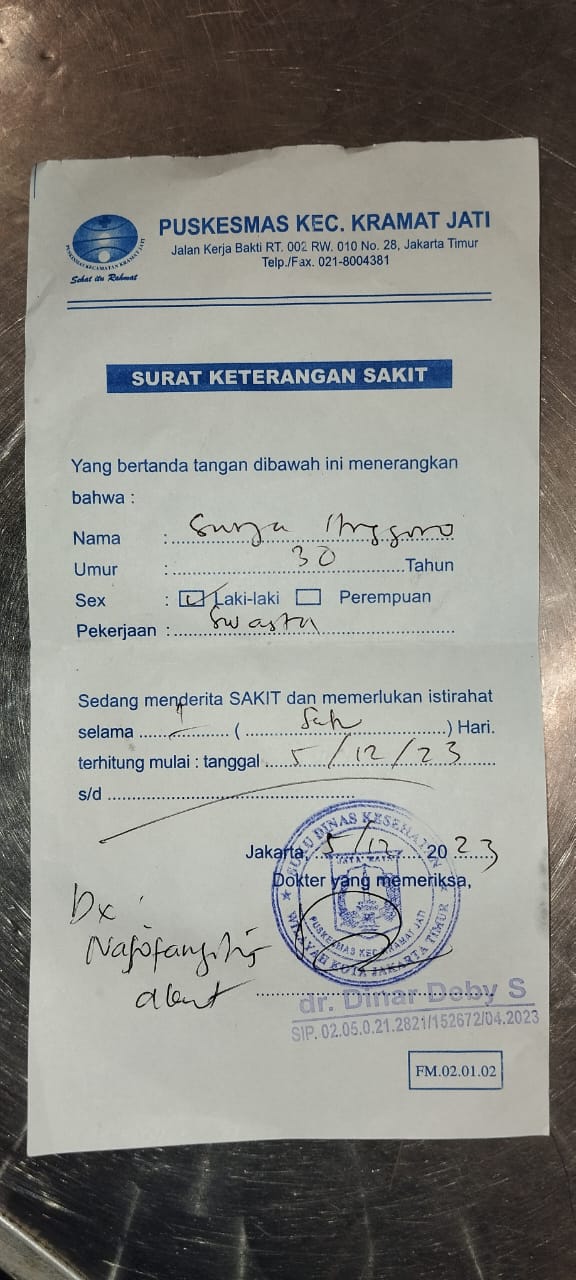 PUSKESMAS KECAMATAN KRAMAT JATI
Sehat itu Rahmat
PUSKESMAS KEC. KRAMAT JATI
Jalan Kerja Bakti RT. 002 RW. 010 No. 28, Jakarta Timur
Telp./Fax. 021-8004381
SURAT KETERANGAN SAKIT
Yang bertanda tangan dibawah ini menerangkan
bahwa :
Nama : Surya Anggoro
Umur : 30 Tahun
Sex : Laki-laki Perempuan
Pekerjaan : Swasta
Sedang menderita SAKIT dan memerlukan istirahat
selama 1 ( Satu ) Hari.
terhitung mulai : tanggal 5/12/23
s/d
Jakarta, 5/12 2023
Dokter yang memeriksa,
SUKU DINAS KESEHATAN
JAYA RAYA
PUSKESMAS KEC. KRAMAT JATI
WILAYAH KOTA JAKARTA TIMUR
Dx :
Nasofaringitis
akut
dr. Dinar Deby S
SIP. 02.05.0.21.2821/152672/04.2023
FM.02.01.02